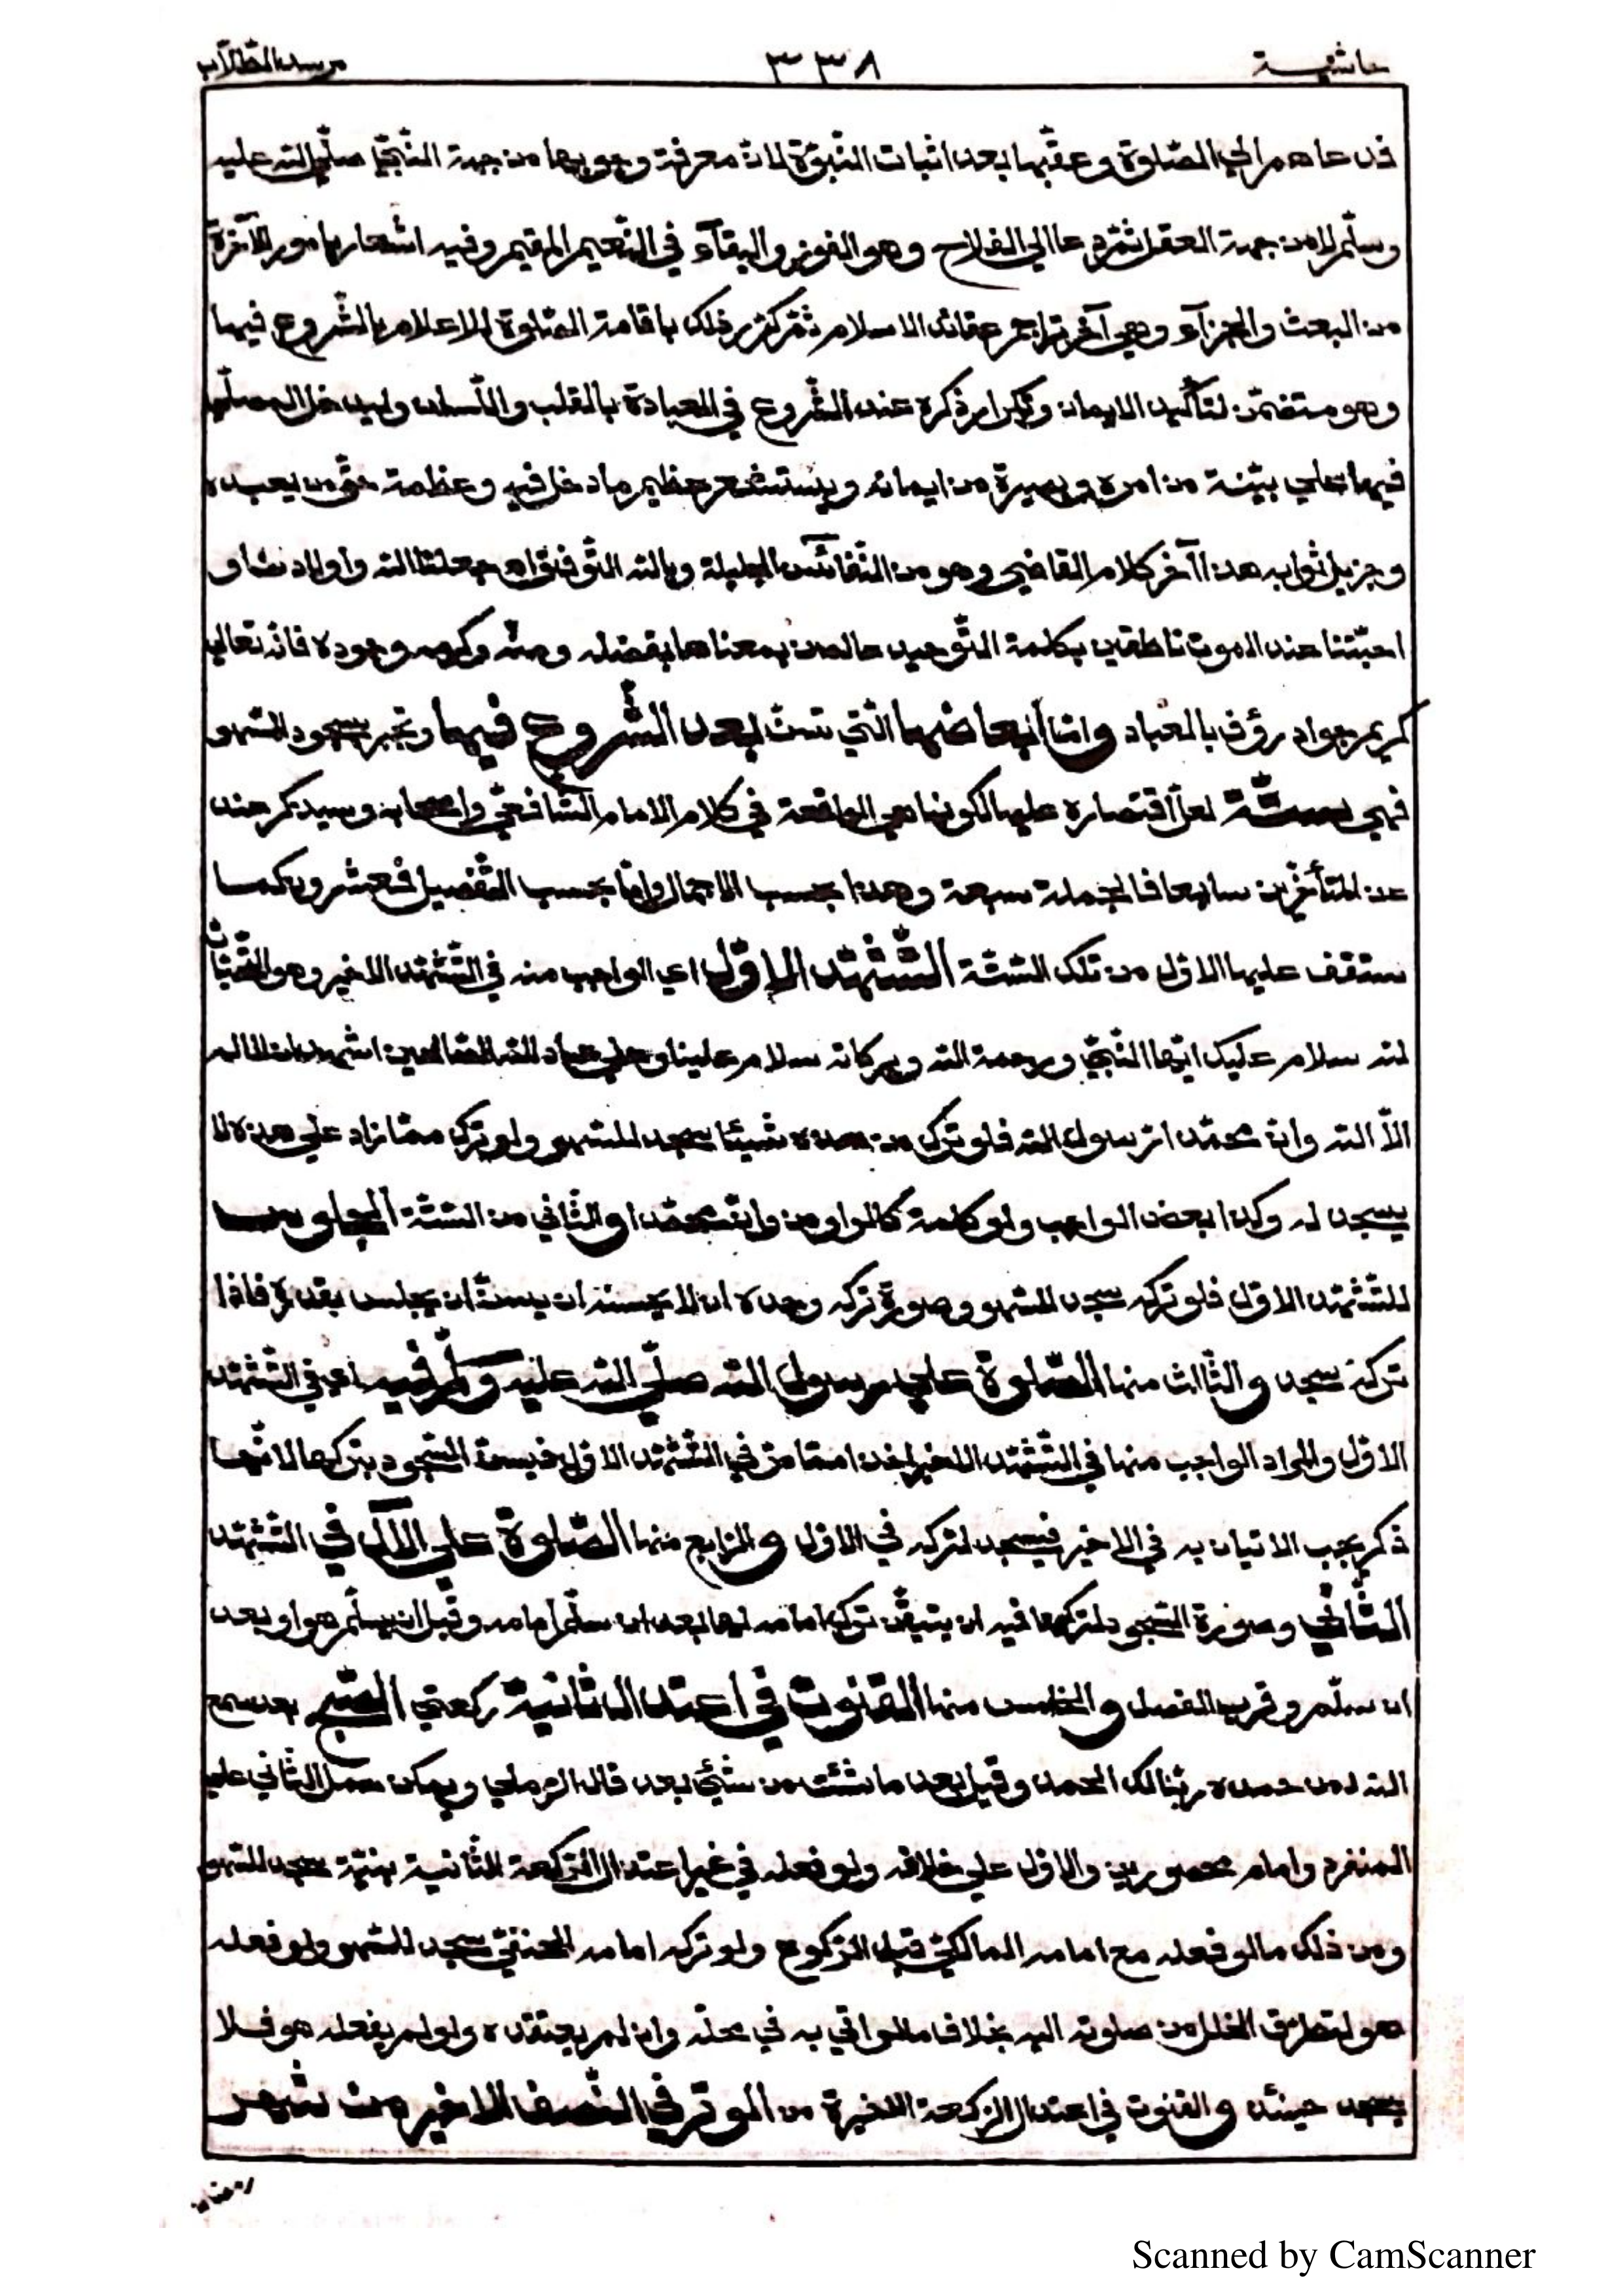 حاشية ٣٣٨ مرشد الطّلّاب
فدعاهم الي الصّلوة وعقّبها بعد اثبات النّبوّة لانّ معرفة وجوبها من جهة النّبيّ صلّي اللّه عليه
وسلّم لا من جهة العقل ثمّ دعا الي الفلاح وهو الفوز والبقآء في النّعيم المقيم وفيه اشعار بامور الآخرة
من البعث والجزآء وهي آخر تراجم عقائد الاسلام ثمّ كرّر ذلك باقامة الصّلوة للاعلام بالشّروع فيها
وهو متضمّن لتأكيد الايمان وتكرار ذكره عند الشّروع في العبادة بالقلب واللّسان وليدخل المصلّي
فيها علي بيّنة من امره وبصيرة من ايمانه ويستشعر عظيم ما دخل فيه وعظمة حقّ من يعبده
وجزيل ثوابه هذا آخر كلام القاضي وهو من النّفائس الجليلة وباللّه التّوفيق اه جعلنا اللّه واولادنا و
احبّتنا عند الموت ناطقين بكلمة التّوحيد عالمين بمعناها بفضله ومنّه وكرمه وجوده فانّه تعالي
كريم جواد رؤف بالعباد وامّا ابعاضها الّتي تسنّ بعد الشّروع فيها وتجبر بسجود السّهو
فهي ستّة لعلّ اقتصاره عليها لكونها هي الواقعة في كلام الامام الشّافعيّ واصحابه وسيذكر عند
عن المتأخّرين سابعا فالجملة سبعة وهذا بحسب الاجمال وامّا بحسب التّفصيل فعشرون كما
ستقف عليها الاوّل من تلك السّتّة التّشهّد الاوّل اي الواجب منه في التّشهّد الاخير وهو التّحيّات
للّه سلام عليك ايّها النّبيّ ورحمة اللّه وبركاته سلام علينا وعلي عباد اللّه الصّالحين اشهد ان لا اله
الاّ اللّه وانّ محمّدا رسول اللّه فلو ترك من هذه شيئا سجد للسّهو ولو ترك ممّا زاد علي هذه لا
يسجد له وكذا بعض الواجب ولو كلمة كالواو من وانّ محمّدا والثّاني من السّتّة الجلوس
للتّشهّد الاوّل فلو تركه سجد للسّهو وصورة تركه وحده ان لا يحسنه ان يسنّ ان يجلس بقدره فاذا
تركه سجد والثّالث منها الصّلوة علي رسول اللّه صلّي اللّه عليه وسلّم فيه اي في التّشهّد
الاوّل والمراد الواجب منها في التّشهّد الاخير اخذا ممّا مرّ في التّشهّد الاوّل فيسنّ السّجود بتركها لانّها
ذكر يجب الاتيان به في الاخير فيسجد لتركه في الاوّل والرّابع منها الصّلوة علي الآل في التّشهّد
الثّاني وصورة السّجود لتركها فيه ان يتيقّن ترك امامه لها بعد ان سلّم امامه وقبل ان يسلّم هو او بعد
ان سلّم وقرب الفصل والخامس منها القنوت في اعتدال ثانية ركعتي الصّبح بعد سمع
اللّه لمن حمده ربّنا لك الحمد وقيل بعد ما شئت من شيئ بعد قال الرّملي ويمكن حمل الثّاني علي
المنفرد وامام محصورين والاوّل علي خلافه ولو فعله في غير اعتدال الرّكعة الثّانية بنيّة سجد للسّهو
ومن ذلك ما لو فعله مع امامه المالكيّ قبل الرّكوع ولو تركه امامه الحنفيّ سجد للسّهو ولو فعله
هو لتطرّق الخلل من صلوته اليه بخلاف ما لو اتي به في محلّه وان لم يعتقده ولو لم يفعله هو فلا
يسجد حينئذ والقنوت في اعتدال الرّكعة الاخيرة من الوتر في النّصف الاخير من شهر
رمضان
Scanned by CamScanner